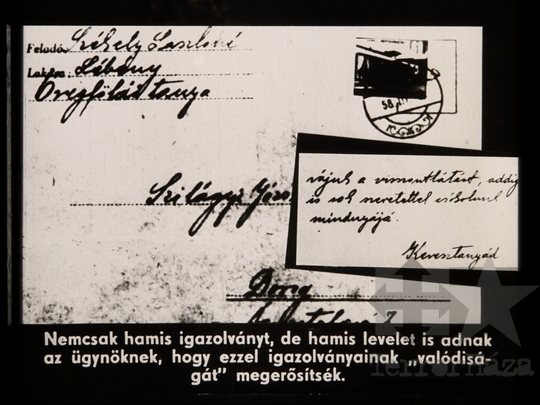 Feladó: Székely Lászlóné
Lakása: Lébény
Öregföldektanya
58
Szilágyi József
várjuk a viszontlátást, addig
is sok szeretettel csókolunk
mindnyájá
Keresztanyád
Nemcsak hamis igazolványt, de hamis levelet is adnak
az ügynöknek, hogy ezzel igazolványainak „valódisá-
gát” megerősítsék.
Terror Háza